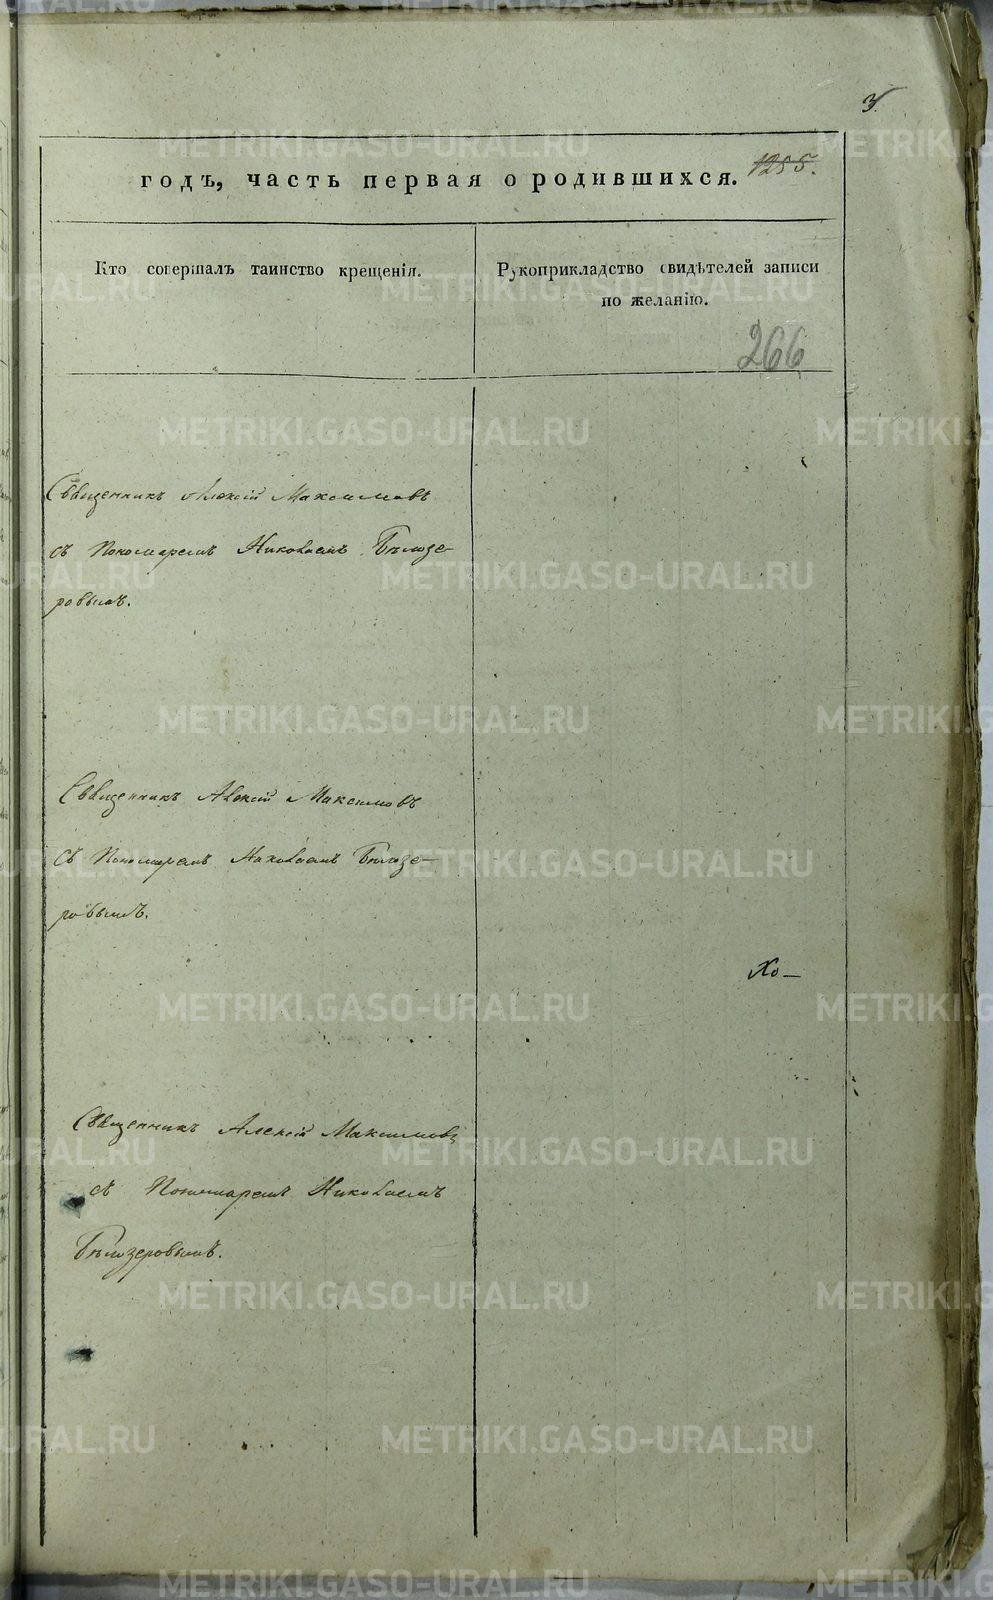 3.
1255.
годъ, часть первая о родившихся.
Кто совершалъ таинство крещенія.
Рукоприкладство свидѣтелей записи
по желанію.
266
Священникъ Алексій Максимовъ
съ Пономаремъ Николаемъ Бѣлозе-
ровымъ.
Священникъ Алексій Максимовъ
съ Пономаремъ Николаемъ Бѣлозе-
ровымъ.
Хо-
Священникъ Алексій Максимовъ
съ Пономаремъ Николаемъ
Бѣлозеровымъ.
METRIKI.GASO-URAL.RU